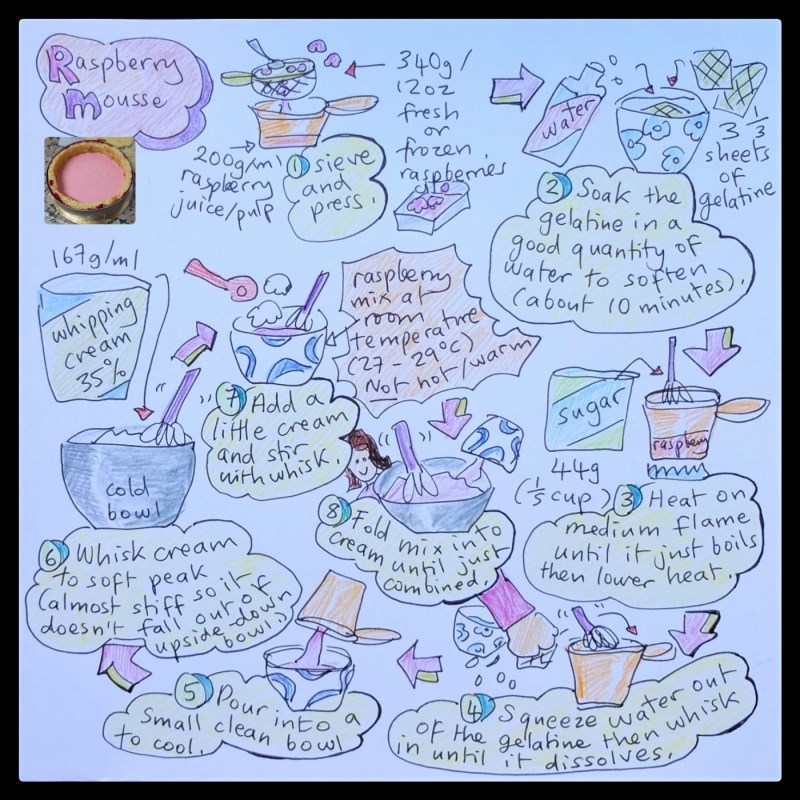 Raspberry
Mousse
340g/
12oz
fresh
or
frozen
raspberries
200g/ml
raspberry
juice/pulp
① sieve
and
press.
water
3 1/3
sheets
of
gelatine
② Soak the
gelatine in a
good quantity of
water to soften
(about 10 minutes).
sugar
44g
(1/5 cup)
raspberry
③ Heat on
medium flame
until it just boils
then lower heat.
④ Squeeze water out
of the gelatine then whisk
in until it dissolves.
⑤ Pour into a
small clean bowl
to cool.
167g/ml
whipping
cream
35%
cold
bowl
⑥ Whisk cream
to soft peak
(almost stiff so it
doesn't fall out of
upside-down
bowl).
raspberry
mix at
room
temperature
(27-29°C)
Not hot/warm
⑦ Add a
little cream
and stir
with whisk.
⑧ Fold mix into
cream until just
combined.